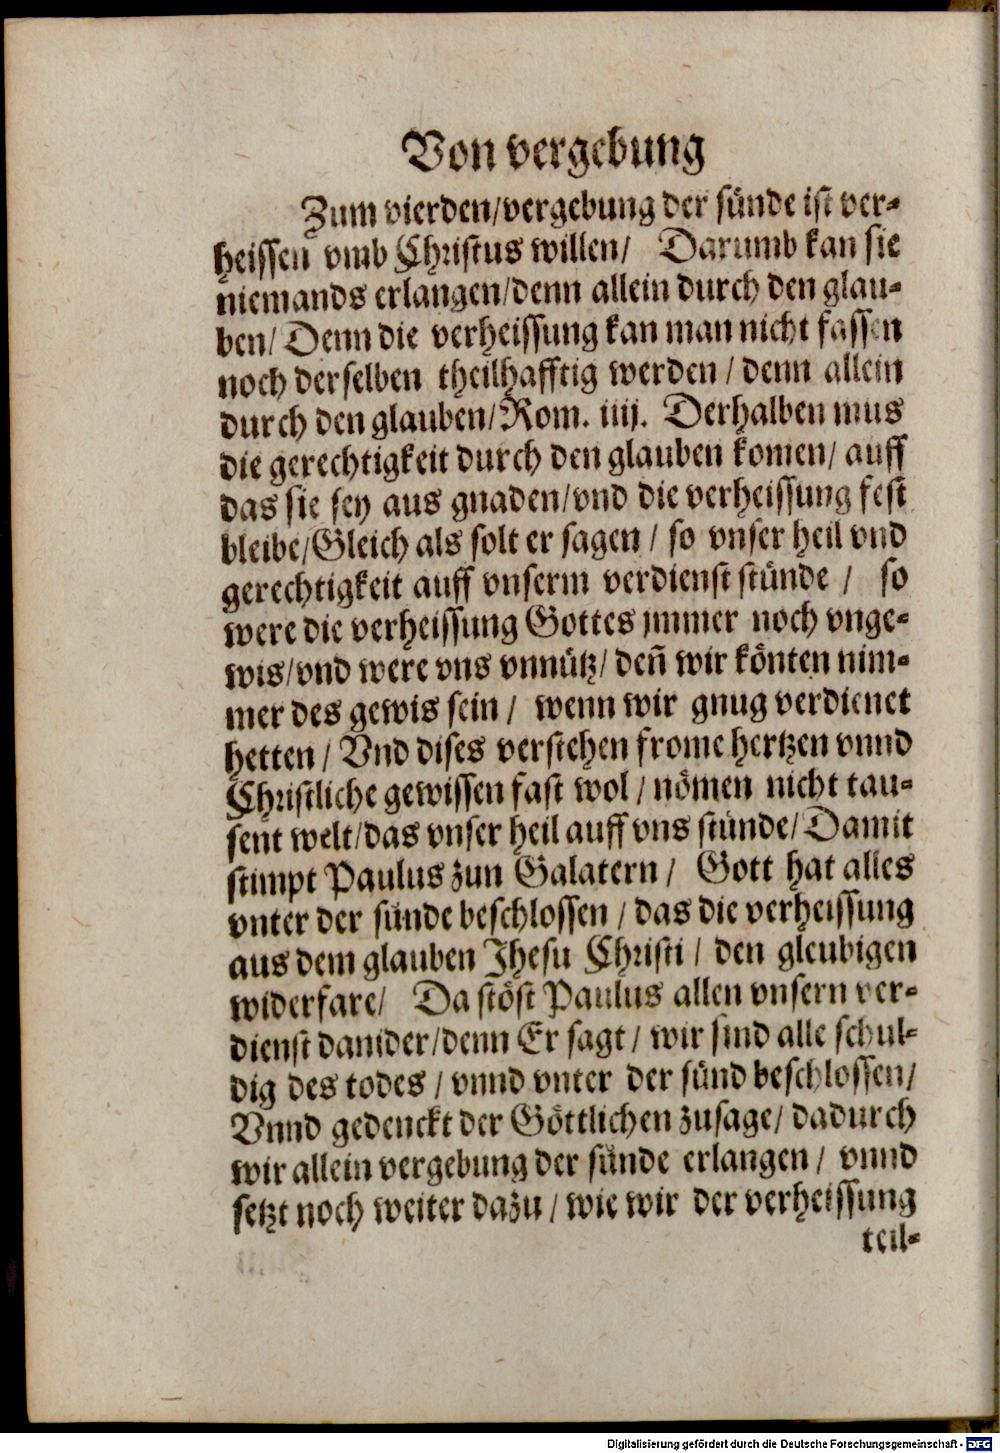 Von vergebung
Zum vierden/vergebung der sünde ist ver-
heissen vmb Christus willen/ Darumb kan sie
niemands erlangen/denn allein durch den glau-
ben/ Denn die verheissung kan man nicht fassen
noch derselben theilhafftig werden / denn allein
durch den glauben/Rom. iiij. Derhalben mus
die gerechtigkeit durch den glauben komen/ auff
das sie sey aus gnaden/vnd die verheissung fest
bleibe/Gleich als solt er sagen / so vnser heil vnd
gerechtigkeit auff vnserm verdienst stünde / so
were die verheissung Gottes jmmer noch vnge-
wis/vnd were vns vnnütz/ deñ wir könten nim-
mer des gewis sein / wenn wir gnug verdienet
hetten / Vnd dises verstehen frome hertzen vnnd
Christliche gewissen fast wol / nömen nicht tau-
sent welt/das vnser heil auff vns stünde/ Damit
stimpt Paulus zun Galatern / Gott hat alles
vnter der sünde beschlossen / das die verheissung
aus dem glauben Jhesu Christi / den gleubigen
widerfare/ Da stöst Paulus allen vnsern ver-
dienst danider/denn Er sagt / wir sind alle schul-
dig des todes / vnnd vnter der sünd beschlossen/
Vnnd gedenckt der Göttlichen zusage/ dadurch
wir allein vergebung der sünde erlangen / vnnd
setzt noch weiter dazu / wie wir der verheissung
teil-
Digitalisierung gefördert durch die Deutsche Forschungsgemeinschaft - DFG